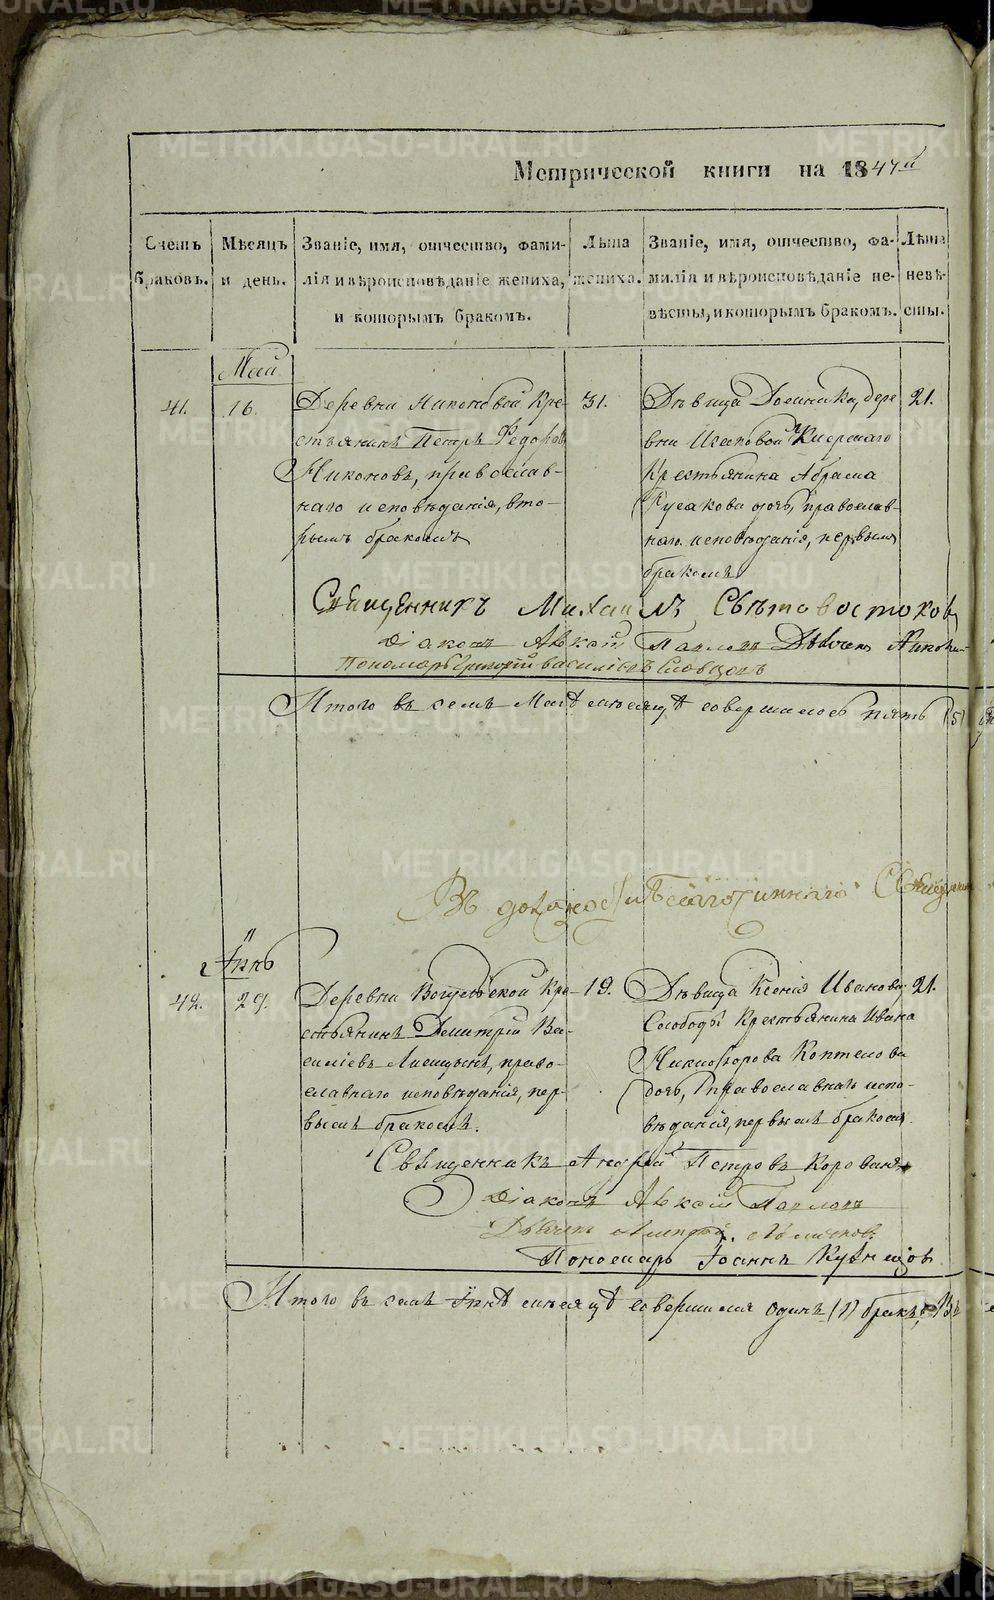 Метрической книги на 1847й
Счетъ браковъ.
Мѣсяцъ и день.
Званіе, имя, отчество, фами-
лія и вѣроисповѣданіе жениха,
и которымъ бракомъ.
Лѣта жениха.
Званіе, имя, отчество, фа-
милія и вѣроисповѣданіе не-
вѣсты, и которымъ бракомъ.
Лѣта невѣ-
сты.
Май
41.
16.
Деревни Никоновой Кре-
стьянинъ Петръ Федоровъ
Никоновъ, православ-
наго исповѣданія, вто-
рымъ бракомъ
31.
Дѣвица Домника, дере
вни Исаковой
Крестьянина Абрама
Русакова дочь, православ-
наго исповѣданія, первымъ
бракомъ
21.
Священникъ Михаилъ Свѣтовостоковъ
Діаконъ Павловъ Дьячекъ
Пономарь Григорій Васильевъ Словцовъ
Итого въ семъ Маѣ мѣсяцѣ совершилось пять (5)
Въ должности Благочиннаго Священникъ
Іюнь
42.
29.
Деревни Вогульской Кре-
стьянинъ Димитрій Ва-
силіевъ Лисицынъ, право-
славнаго исповѣданія, пер-
вымъ бракомъ.
19.
Дѣвица Ксенія Иванова
Слободы Крестьянина Ивана
Никифорова Коптелова
дочь, православнаго испо-
вѣданія, первымъ бракомъ
21.
Священникъ Андрей Петровъ Короваевъ
Діаконъ Павловъ
Дьячекъ
Пономарь Іоаннъ Кузнецовъ
Итого въ семъ Іюнѣ мѣсяцѣ совершился одинъ (1) бракъ,
METRIKI.GASO-URAL.RU